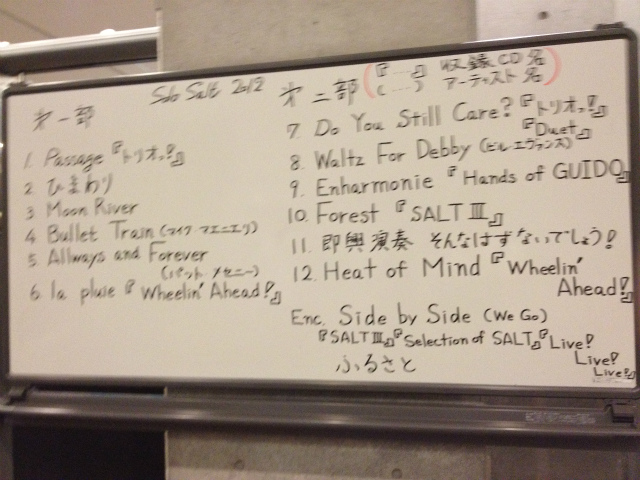 Solo Salt 2012
オ一部
1. Passage『トリオっ!』
2 ひまわり
3 Moon River
4 Bullet Train (マイク マエニエリ)
5 Allways and Forever
(パット メセニー)
6 la pluie『Wheelin' Ahead!』
オ二部 (『...』 収録CD名
(...) アーティスト名)
7 Do You Still Care?『トリオっ!』
『Duet』
8. Waltz For Debby (ビル・エヴァンス)
9. Enharmonie『Hands of GUIDO』
10. Forest『SALT III』
11. 即興演奏 そんなはずないでしょう!
12. Heat of Mind『Wheelin'
Ahead!』
Enc. Side by Side (We Go)
『SALT III』『Selection of SALT』『Live!
Live!
Live!』
ふるさと